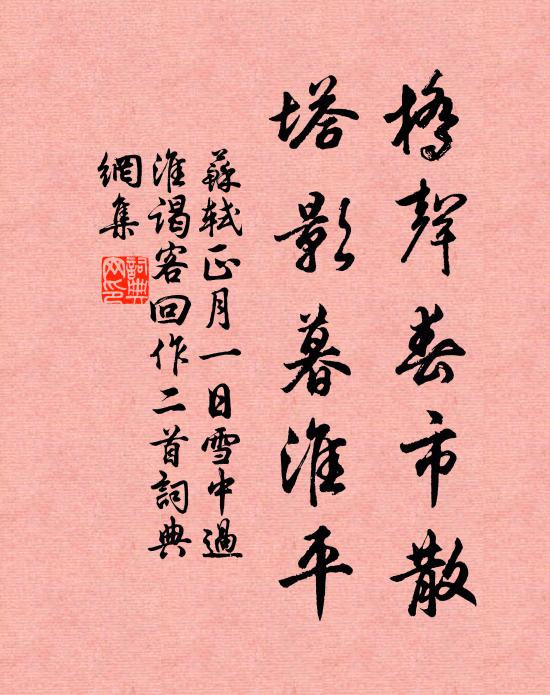 橋聲春市散
塔影暮淮平
蘇軾正月一日雪中過
淮謁客回作二首詞典
網集
詞典網印